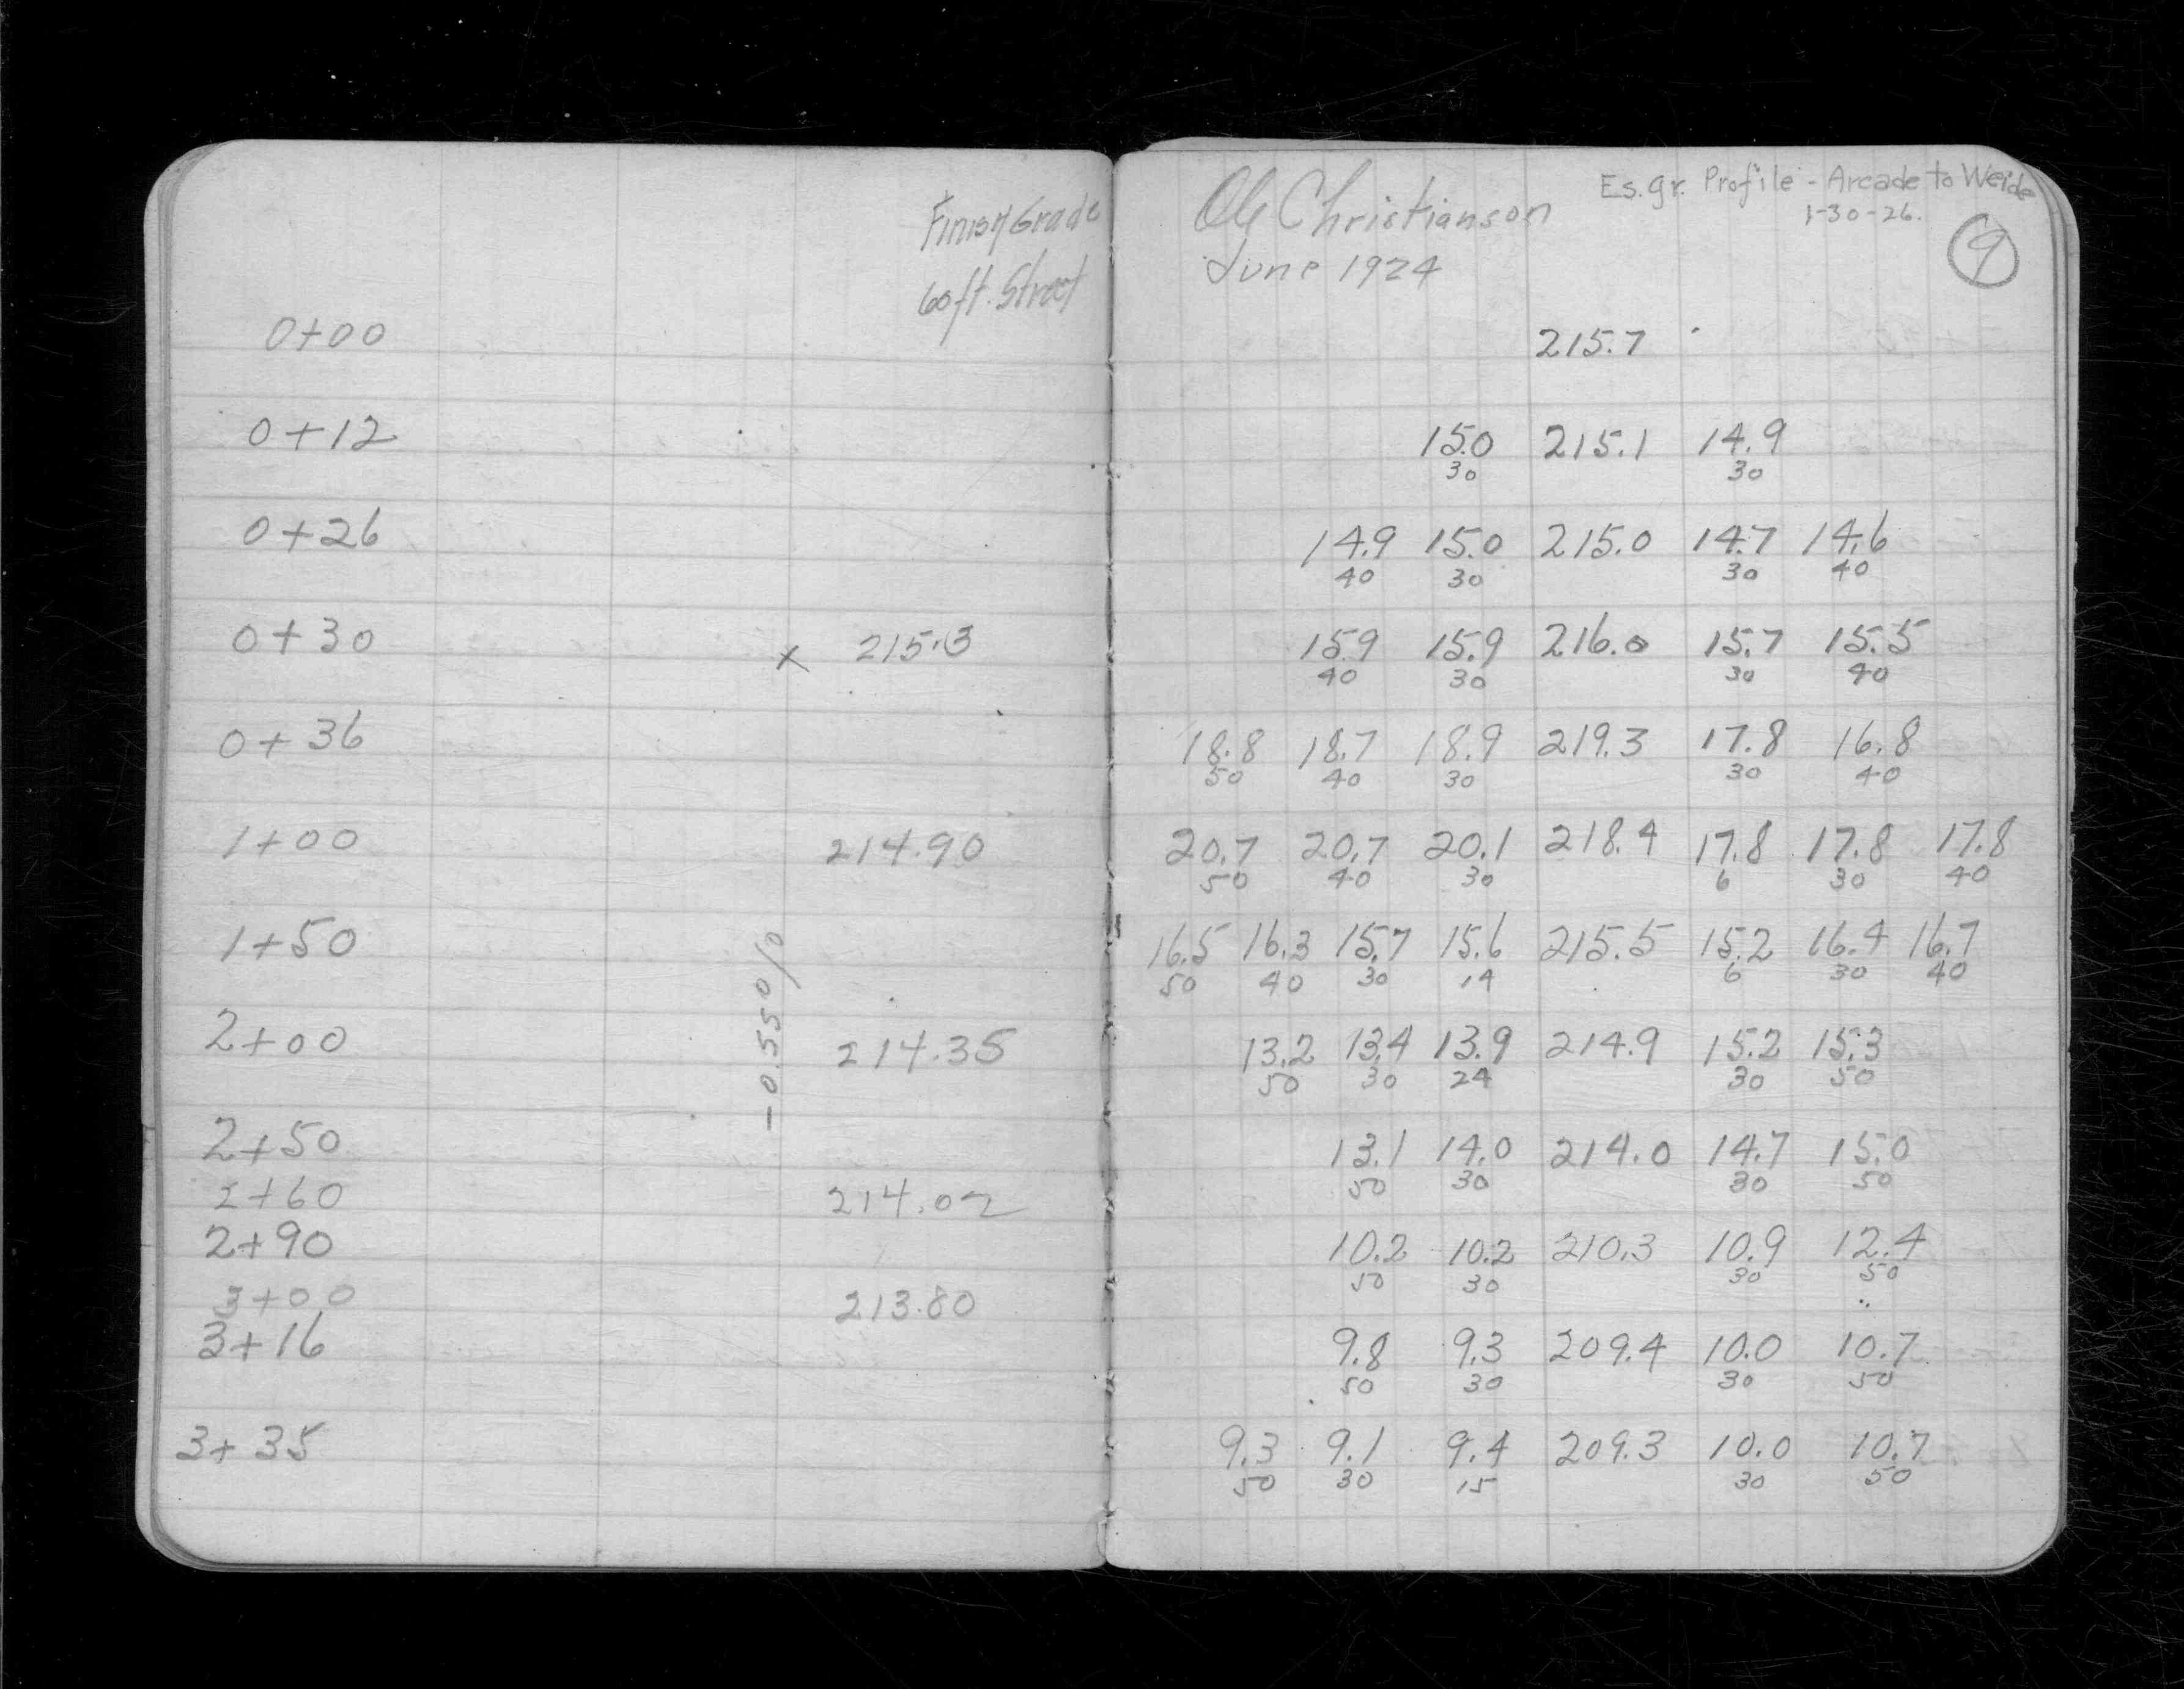 Finish Grade
60 ft. Street
0+00
0+12
0+26
0+30 x 215.3
0+36
1+00 214.90
1+50
-0.55%
2+00 214.35
2+50
2+60 214.02
2+90
3+00 213.80
3+16
3+35
Ole Christianson
June 1924
Es. gr. Profile - Arcade to Weide
1-30-26.
9
215.7
15.0 215.1 14.9
30 30
14.9 15.0 215.0 14.7 14.6
40 30 30 40
15.9 15.9 216.0 15.7 15.5
40 30 30 40
18.8 18.7 18.9 219.3 17.8 16.8
50 40 30 30 40
20.7 20.7 20.1 218.4 17.8 17.8 17.8
50 40 30 6 30 40
16.5 16.3 15.7 15.6 215.5 15.2 16.4 16.7
50 40 30 14 6 30 40
13.2 13.4 13.9 214.9 15.2 15.3
50 30 24 30 50
13.1 14.0 214.0 14.7 15.0
50 30 30 50
10.2 10.2 210.3 10.9 12.4
50 30 30 50
9.8 9.3 209.4 10.0 10.7
50 30 30 50
9.3 9.1 9.4 209.3 10.0 10.7
50 30 15 30 50